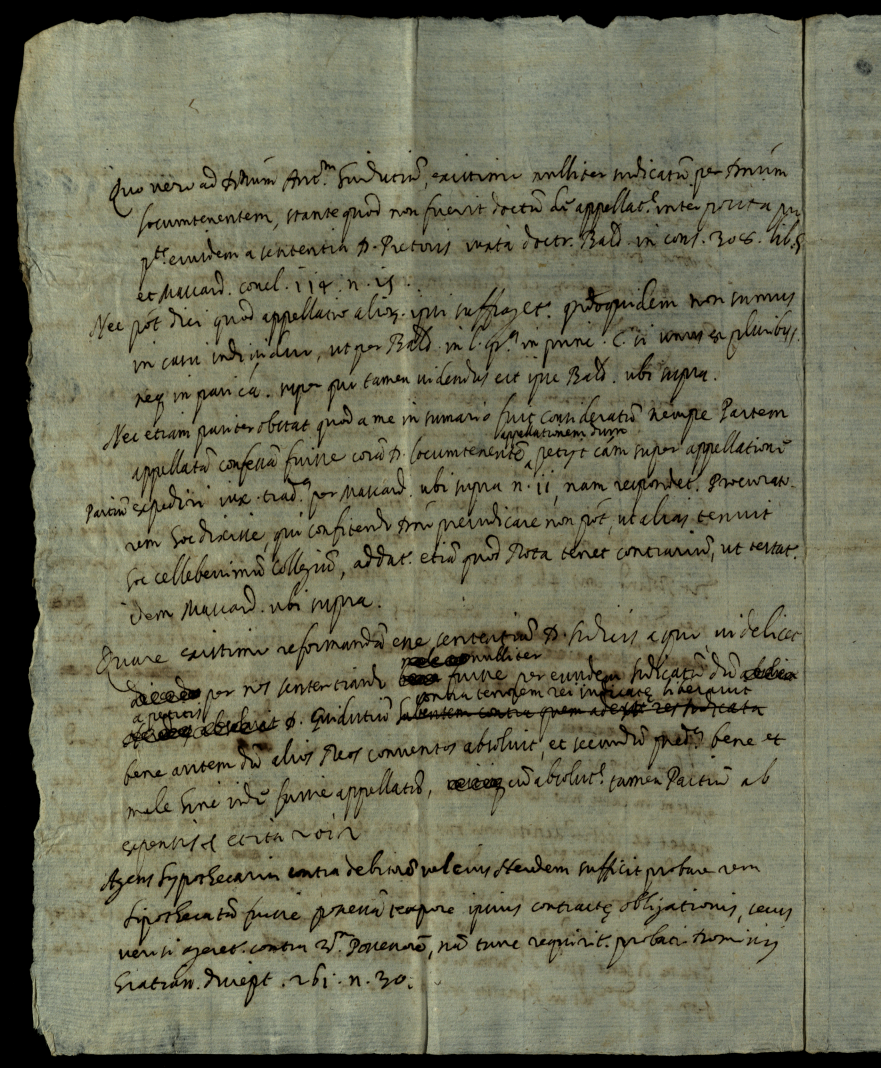 Quo vero ad Dnum Ant.m Guidutiũ, existimo nulliter iudicatũ per Dnum
locumtenentem, stante quod non fuerit doctũ de appellat.e inter posita
p.te eiusdem a sententia D. Pretoris iuxta doctr. Bald. in cons. 308. lib. 5
et Mascard. concl. 114. n. 15.
Nec pót dici quod appellatio alior. ipsi suffraget. quoquidem non sumus
in casu individuo, ut per Bald. in l. in princ. C. si unus ex pluribus.
neq in pari cá. super quo tamen videndus est ipse Bald. ubi supra.
Nec etiam pariter obstat quod a me in sumario fuit consideratũ nempe Partem
appellatã confessã fuisse corã D. locumtenente, appellationem dum petijt cám super appellatione
Partiũ expediri iux. trad. per Mascard. ubi supra n. 11, nam respondet. Procurato-
rem hoc dixisse, qui confitendo Dno preiudicare non pót, ut alias tenuit
hoc celleberrimũ Collegiũ, addat. etiã quod Rota tenet contrariũ, ut testat.
idem Mascard. ubi supra.
Quare existimo reformandã esse sententiam D. Iudicis a quo, videlicet
per nos sententiando nulliter fuisse per eundem Iudicatũ dũ
a petitis D. Guidutiũ contra tenorem rei iudicatę liberavit habentem contra quem adest res Iudicata
bene autem dũ alios Reos conventos absolvit, et secundũ pred.a bene et
male hinc inde fuisse appellatũ, absolut. tamen Partiũ ab
expensis et ita
Agens hypothecaria contra debitorẽ vel eius heredem sufficit probare rem
hipothecatã fuisse possessã tempore ipsius contractę obligationis, secus
vero si ageret. contra 3.m Possessorẽ, nã tunc requirit. probari Dominiũ
Gratian. discept. 261. n. 30.